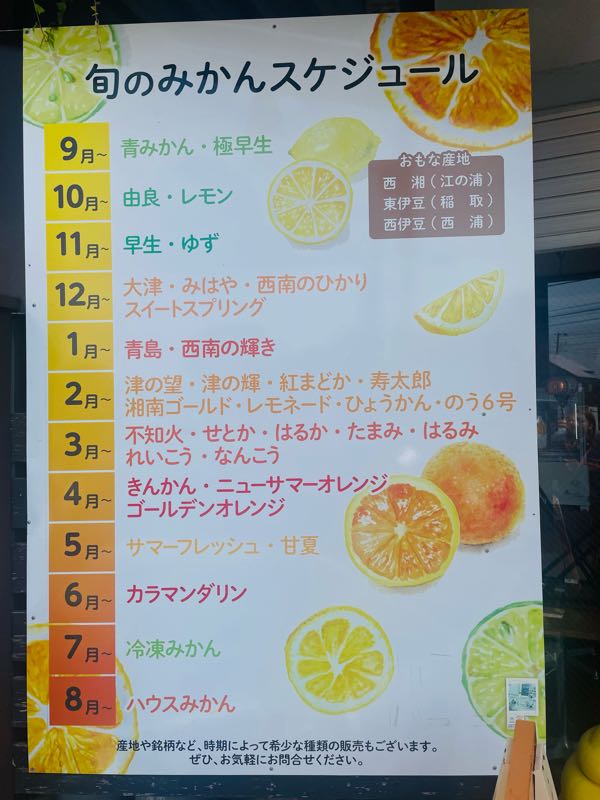 旬のみかんスケジュール
9月~ 青みかん・極早生
10月~ 由良・レモン
11月~ 早生・ゆず
12月~ 大津・みはや・西南のひかり
スイートスプリング
1月~ 青島・西南の輝き
2月~ 津の望・津の輝・紅まどか・寿太郎
湘南ゴールド・レモネード・ひょうかん・のう6号
3月~ 不知火・せとか・はるか・たまみ・はるみ
れいこう・なんこう
4月~ きんかん・ニューサマーオレンジ
ゴールデンオレンジ
5月~ サマーフレッシュ・甘夏
6月~ カラマンダリン
7月~ 冷凍みかん
8月~ ハウスみかん
おもな産地
西 湘(江の浦)
東伊豆(稲 取)
西伊豆(西 浦)
産地や銘柄など、時期によって希少な種類の販売もございます。
ぜひ、お気軽にお問合せください。